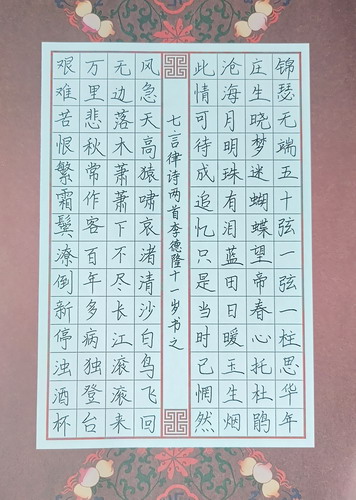 锦瑟无端五十弦一弦一柱思华年
庄生晓梦迷蝴蝶望帝春心托杜鹃
沧海月明珠有泪蓝田日暖玉生烟
此情可待成追忆只是当时已惘然
七言律诗两首李德隆十一岁书之
风急天高猿啸哀渚清沙白鸟飞回
无边落木萧萧下不尽长江滚滚来
万里悲秋常作客百年多病独登台
艰难苦恨繁霜鬓潦倒新停浊酒杯